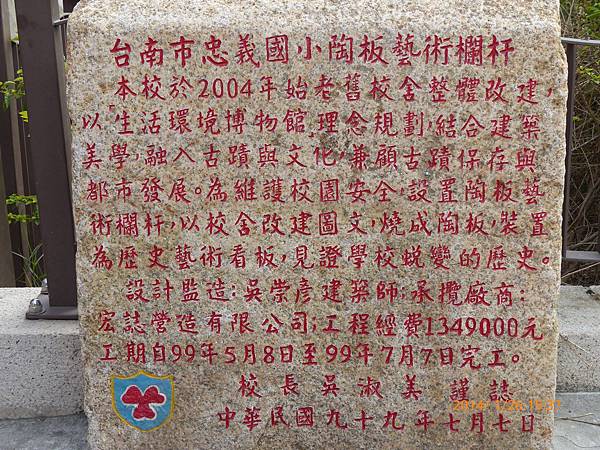 台南市忠義國小陶板藝術欄杆
本校於2004年始老舊校舍整體改建，
以「生活環境博物館」理念規劃，結合建築
美學，融入古蹟與文化，兼顧古蹟保存與
都市發展。為維護校園安全，設置陶板藝
術欄杆，以校舍改建圖文，燒成陶板，裝置
為歷史藝術看板，見證學校蛻變的歷史。
設計監造：吳崇彥建築師；承攬廠商：
宏誌營造有限公司；工程經費1349000元
工期自99年5月8日至99年7月7日完工。
校長吳淑美謹誌
中華民國九十九年七月七日